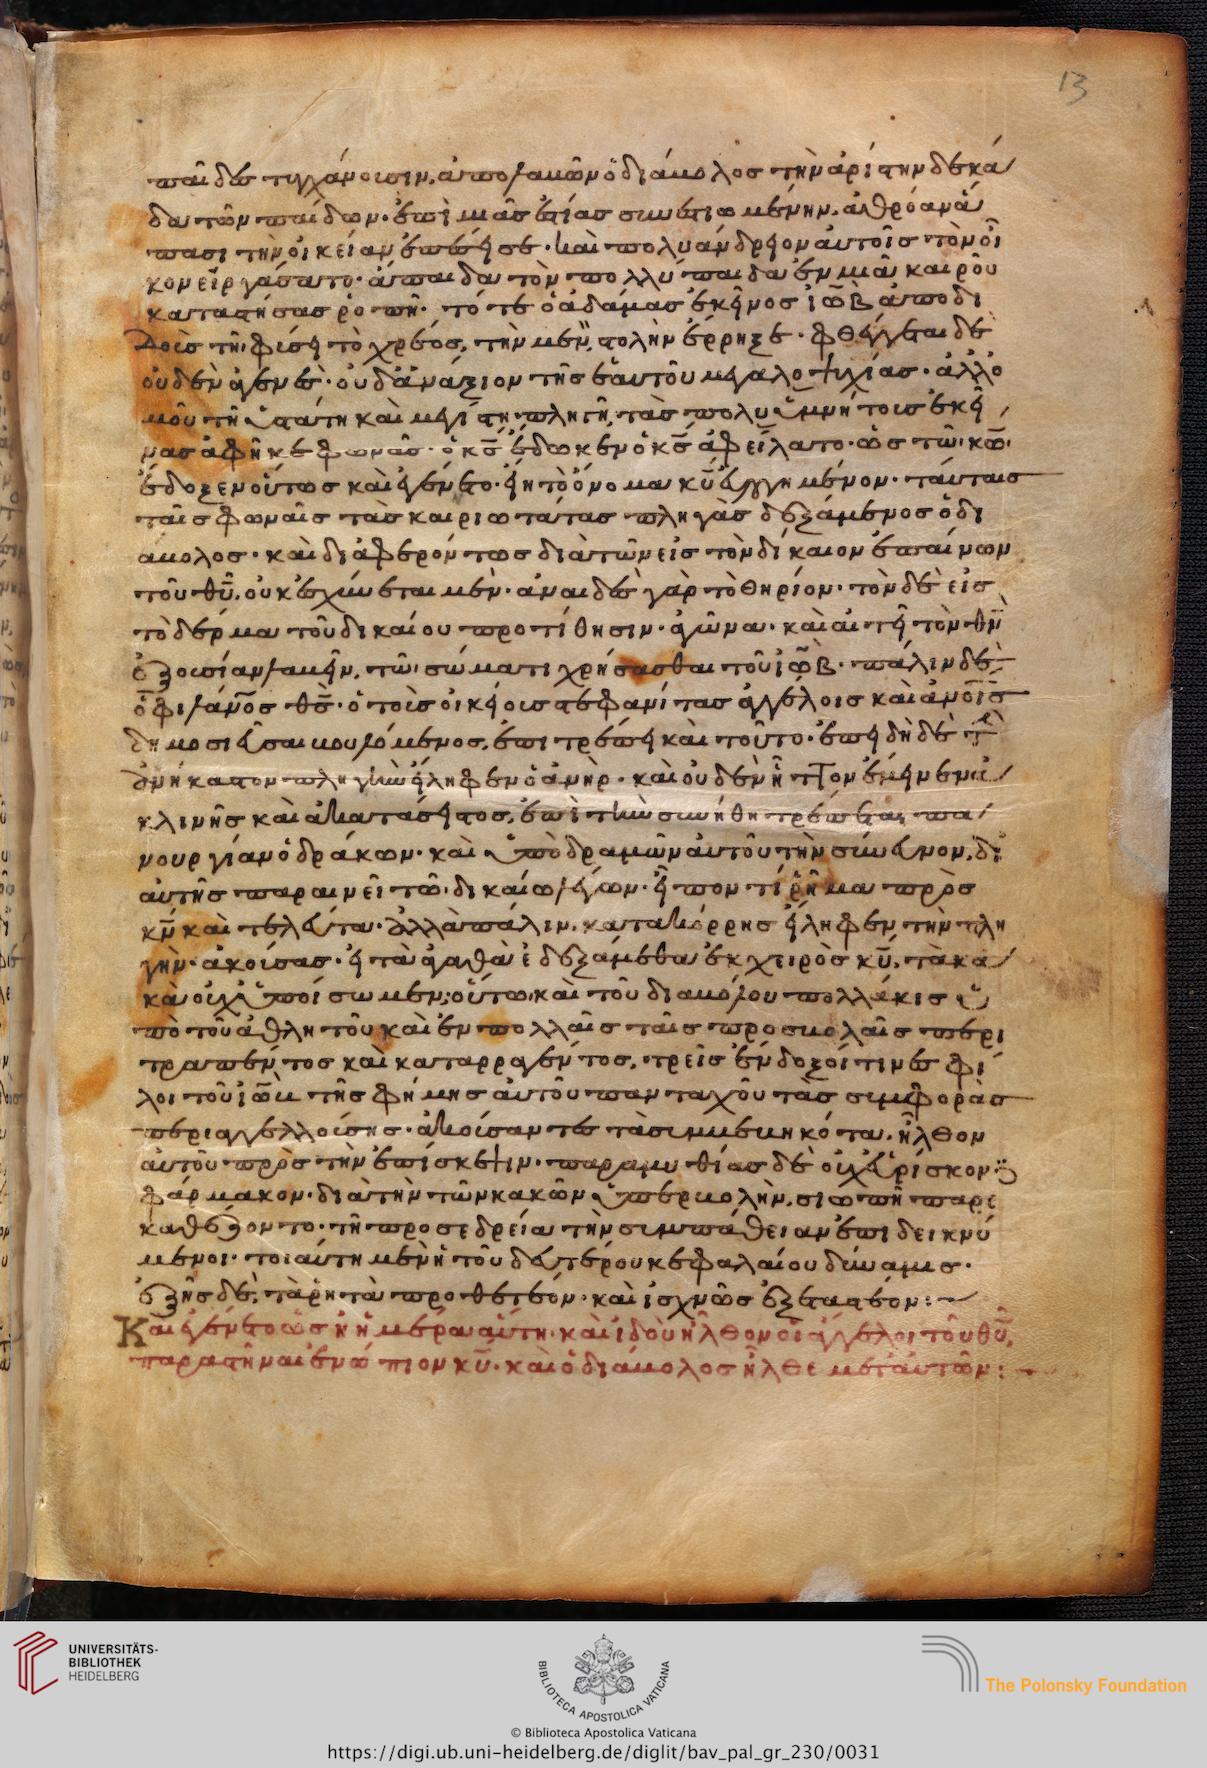 13
παῖδες τυγχάνουσιν, ἀπολαβὼν ὁ διάβολος τὴν ἀρίστην δεκά
δα τῶν παίδων· ἐπὶ μιᾶς ἑστίας συνεστιωμένην, ἀθρόαν ἅ
πασι τὴν οἰκείαν ἐπέσεισε· καὶ πολυάνδριον αὐτοῖς τὸν οἶ
κον εἰργάσατο· ἄπαιδα τὸν πολλύπαιδα ἐν μιᾷ καιροῦ
καταστήσας ῥοπῇ· τότε ὁ ἀδάμας ἐκεῖνος ἰὼβ ἀποδι
δοὺς τῇ φύσει τὸ χρέος, τὴν μὲν στολὴν ἔρρηξε· φθέγγεται δὲ
οὐδὲν ἀγενὲς· οὐδ' ἀνάξιον τῆς ἑαυτοῦ μεγαλοψυχίας· ἀλλ' ὁ
μοῦ τῇ ἐσχάτῃ καὶ μεγίστῃ πληγῇ, τὰς πολυυμνήτους ἐκεί
νας ἀφῆκε φωνάς· ὁ κς ἔδωκεν ὁ κς ἀφείλατο· ὡς τῷ κω
ἔδοξεν οὕτως καὶ ἐγένετο· εἴη τὸ ὄνομα κυ εὐλογημένον· ταύταις
ταῖς φωναῖς τὰς καιριωτάτας πληγὰς δεξάμενος ὁ δι
άβολος· καὶ διαφερόντως διὰ τῶν εἰς τὸν δίκαιον ἐπαίνων
τοῦ θυ, οὐκ αἰσχύνεται μὲν· ἀναιδὲς γὰρ τὸ θηρίον· τὸν δὲ εἰς
τὸ δέρμα τοῦ δικαίου προτίθησιν ἀγῶνα· καὶ αἰτεῖ τὸν θν
ἐξουσίαν λαβεῖν, τῷ σώματι χρήσασθαι τοῦ ἰὼβ· πάλιν δὲ
ὁ φιλανος θς· ὁ τοὺς οἰκείους στεφανίτας ἀγγέλοις καὶ ἀνοις
δημοσιεῦσαι βουλόμενος, ἐπιτρέπει καὶ τοῦτο· ἐπειδὴ δὲ
ἀνήκεστον πληγὴν εἴληφεν ὁ ἀνὴρ· καὶ οὐδὲν ἧττον ἔμεινεν ἀ
κλινὴς καὶ ἀκατάσειστος, ἐπὶ τὴν συνήθη τρέπεται πα
νουργίαν ὁ δράκων· καὶ ὑποδραμὼν αὐτοῦ τὴν σύνευνον, δι'
αὐτῆς παραινεῖ τῷ δικαίῳ λέγων· εἶπον τί ῥῆμα πρὸς
κν καὶ τελεύτα· ἀλλὰ πάλιν, κατακόρρης εἴληφεν τὴν πλη
γὴν· ἀκούσας· εἰ τὰ ἀγαθὰ ἐδεξάμεθα ἐκ χειρὸς κυ, τὰ κα
κὰ οὐχ ὑποίσωμεν; οὕτω καὶ τοῦ διαβόλου πολλάκις ὑ
πὸ τοῦ ἀθλητοῦ καὶ ἐν πολλαῖς ταῖς προσβολαῖς περι
τραπέντος καὶ καταρραγέντος, τρεῖς ἔνδοξοί τινες φί
λοι τοῦ ἰὼβ τῆς φήμης αὐτοῦ πανταχοῦ τὰς συμφορὰς
περιαγγελλούσης· ἀκούσαντες τὰ συμβεβηκότα, ἦλθον
αὐτοῦ πρὸς τὴν ἐπίσκεψιν· παραμυθίας δὲ οὐχ εὕρισκον
φάρμακον· διὰ τὴν τῶν κακῶν ὑπερβολὴν, σιωπῇ παρε
καθέζοντο· τῇ προσεδρείᾳ τὴν συμπάθειαν ἐπιδεικνύ
μενοι· τοιαύτη μὲν ἡ τοῦ δευτέρου κεφαλαίου δύναμις·
ἑξῆς δὲ, τὰ ῥητὰ προθετέον· καὶ ἰσχνῶς ἐξεταστέον:
Καὶ ἐγένετο ὡς ἡ ἡμέρα αὕτη· καὶ ἰδοὺ ἦλθον οἱ ἄγγελοι τοῦ θυ,
παραστῆναι ἐνώπιον κυ· καὶ ὁ διάβολος ἦλθε μετ' αὐτῶν:
UNIVERSITÄTS-
BIBLIOTHEK
HEIDELBERG
BIBLIOTECA APOSTOLICA VATICANA
The Polonsky Foundation
© Biblioteca Apostolica Vaticana
https://digi.ub.uni-heidelberg.de/diglit/bav_pal_gr_230/0031